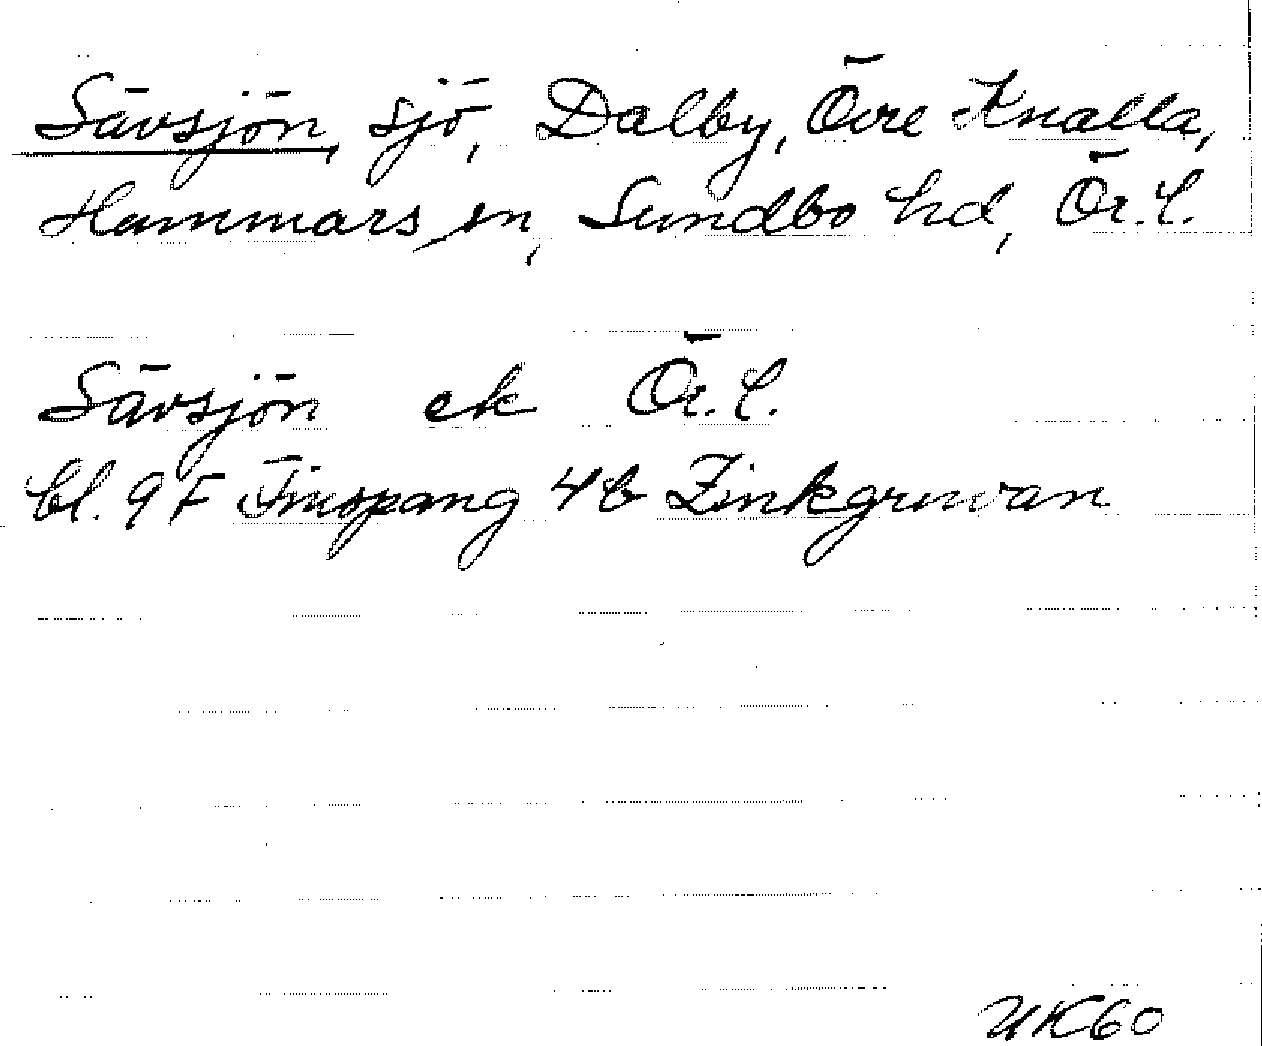 Sävsjön, sjö, Dalby, Övre Knalla,
Hammars sn, Sundbo hd, Ör. l.
Sävsjön ek Ör. l.
bl. 9 F Finspång 4b Zinkgruvan
UK60